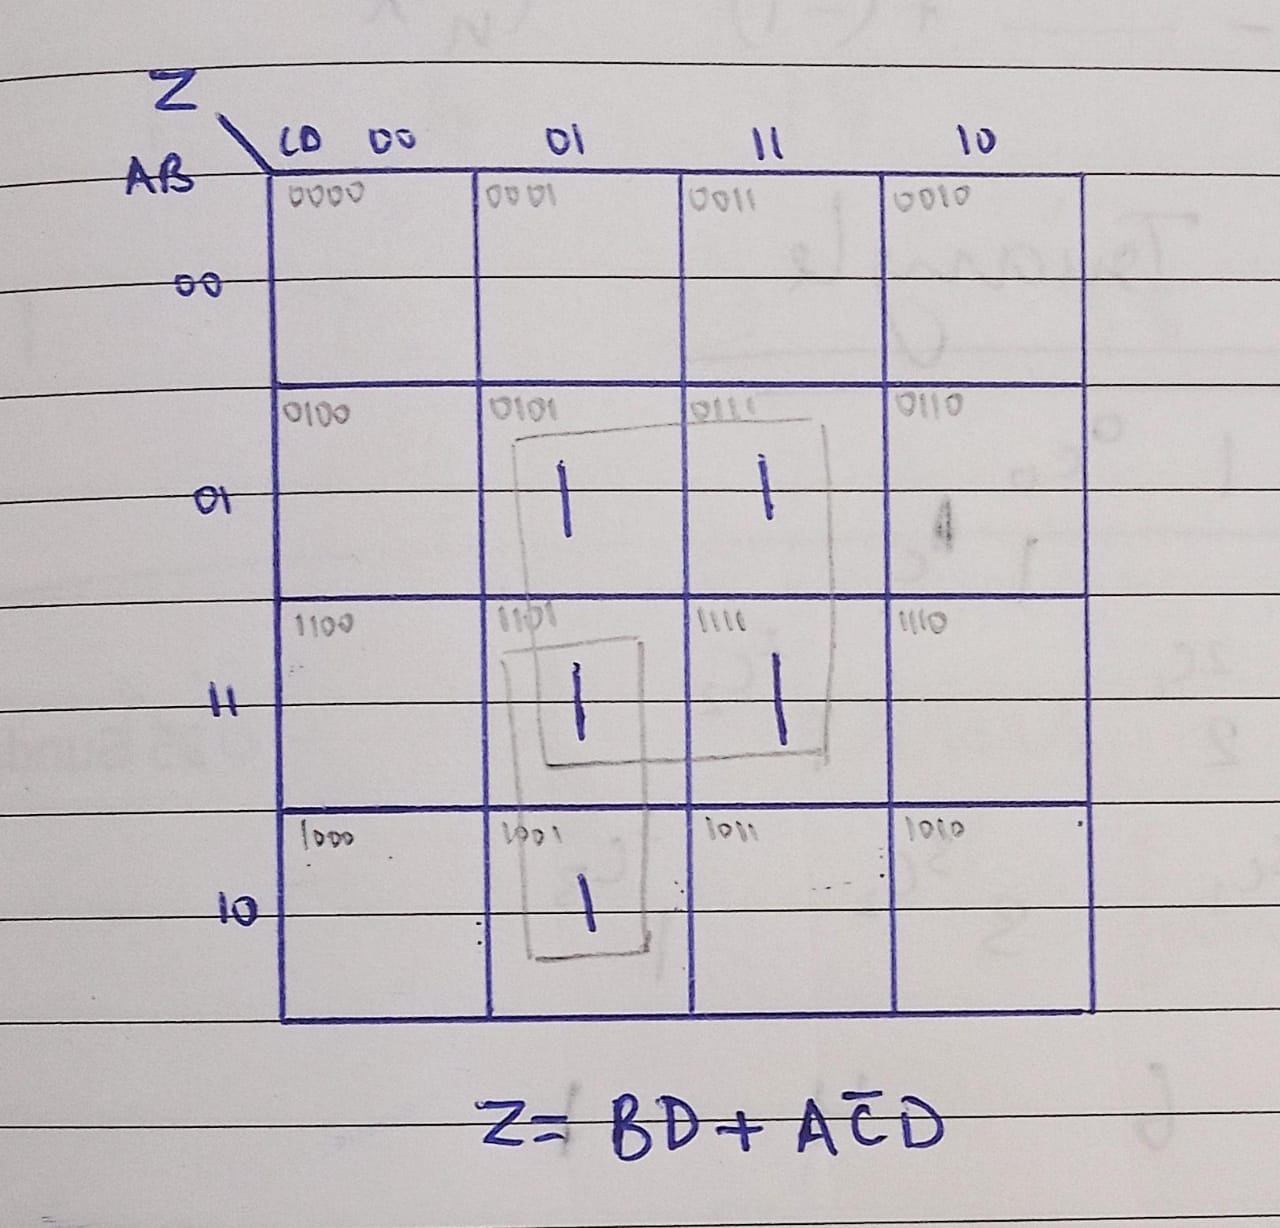 Z
CD 00 01 11 10
AB
0000 0001 0011 0010
00
0100 0101 0111 0110
01 1 1
1100 1101 1111 1110
11 1 1
1000 1001 1011 1010
10 1
Z= BD + AC̅D